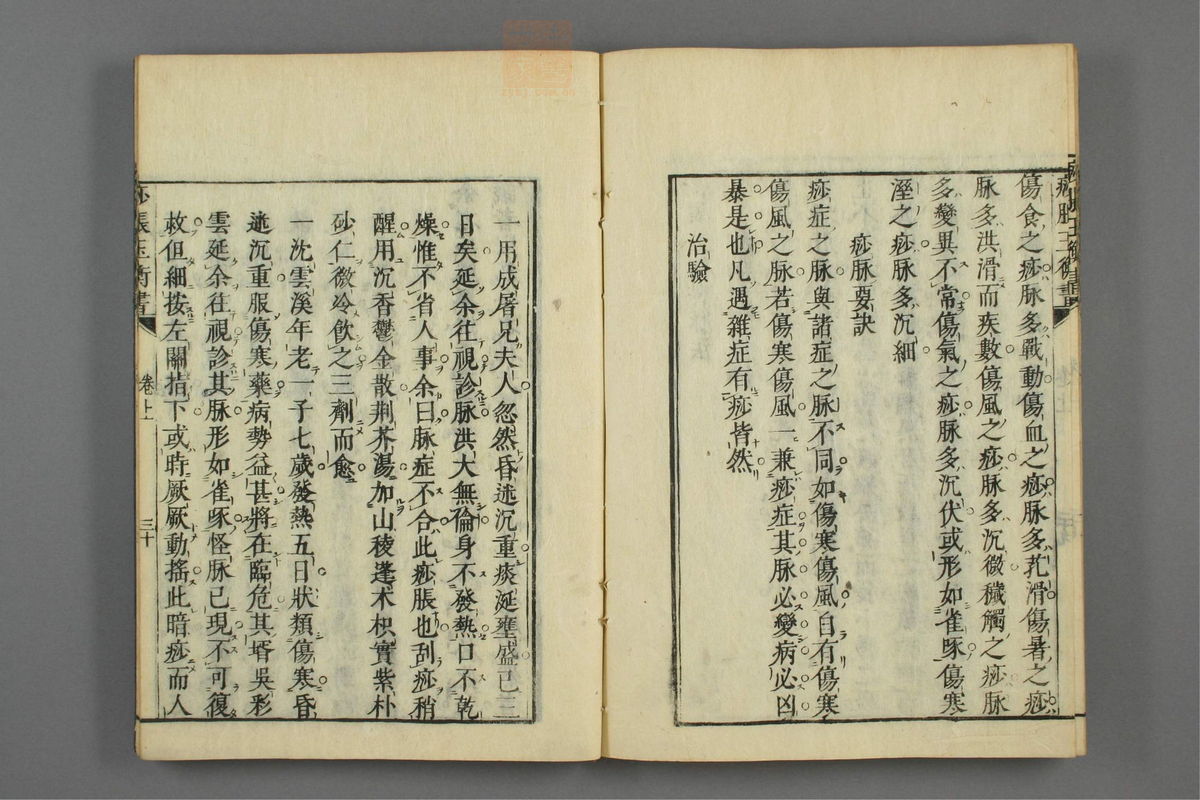 傷食之痧脉多戰動傷血之痧脉多芤滑傷暑之痧
脉多洪滑而疾數傷風之痧脉多沉微穢觸之痧脉
多變異不常傷氣之痧脉多沉伏或形如雀啄傷寒
溼之痧脉多沉細
痧脉要訣
痧症之脉與諸症之脉不同如傷寒傷風自有傷寒
傷風之脉若傷寒傷風一兼痧症其脉必變病必凶
暴是也凡遇雜症有痧皆然
治驗
一用成屠兄夫人忽然昏迷沉重痰涎壅盛已三
日矣延余往視診脉洪大無倫身不發熱口不乾
燥惟不省人事余曰脉症不合此痧脹也刮痧稍
醒用沉香鬱金散荆芥湯加山稜蓬术枳實紫朴
砂仁微冷飲之三劑而愈
一沈雲溪年老一子七歲發熱五日狀類傷寒昏
迷沉重服傷寒藥病勢益甚將在臨危其壻吳彩
雲延余往視診其脉形如雀啄怪脉已現不可復
救但細按左關指下或時厥厥動搖此暗痧而人
痧脹玉衡書
卷上
三十